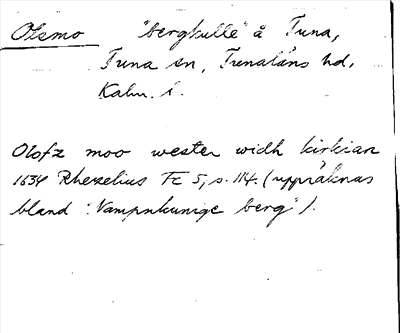 Olsmo "bergkulle" å Tuna,
Tuna sn, Tunaläns hd,
Kalm. l.
Olofz moo wester widh kirkian
1634 Rhezelius Fc 5, s. 114. (uppräknas
bland "Nampnkunige berg").